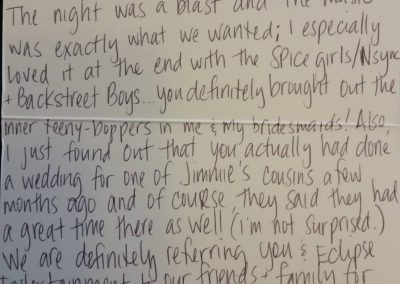 The night was a blast and the music
was exactly what we wanted; I especially
loved it at the end with the Spice girls/Nsync
+ Backstreet Boys...you definitely brought out the
inner teeny-boppers in me & my bridesmaids! Also,
I just found out that you actually had done
a wedding for one of Jimmie's cousins a few
months ago and of course, they said they had
a great time there as well! (i'm not surprised.)
We are definitely referring you & Eclipse
Entertainment to our friends + family for